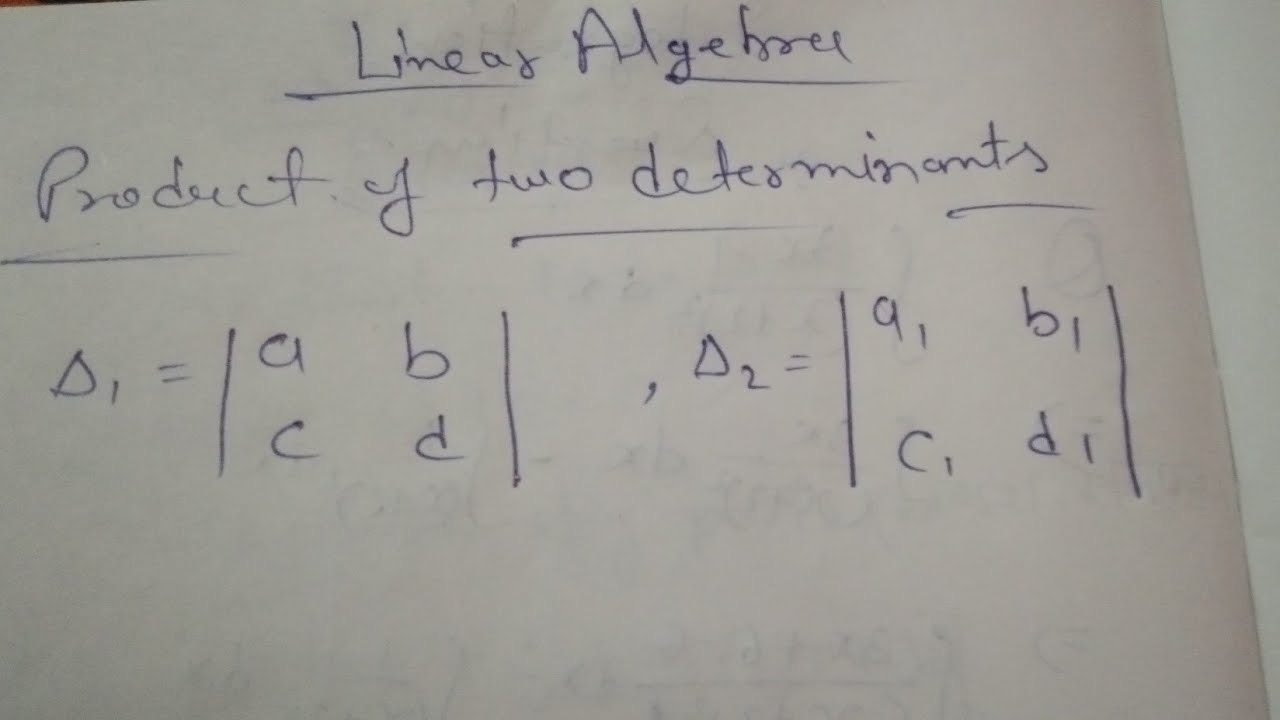 Linear Algebra
Product of two determinants
Δ₁ = | a b | , Δ₂ = | a₁ b₁ |
| c d | | c₁ d₁ |